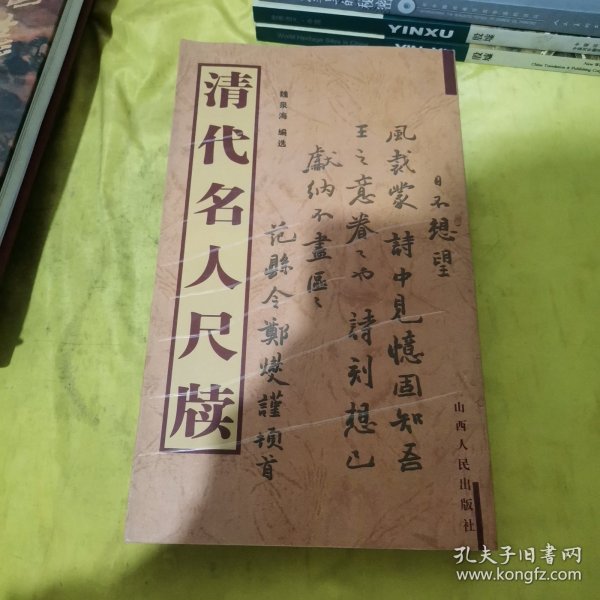 YINXU
殷墟
World Heritage Sites in China
殷墟
清代名人尺牍
魏泉海 编选
日不想望
風裁蒙 詩中見憶固知吾
王之意眷〻也 詩刻想已
獻納不盡區〻
范縣令鄭燮謹頓首
山西人民出版社
孔夫子旧书网
www.kongfz.com